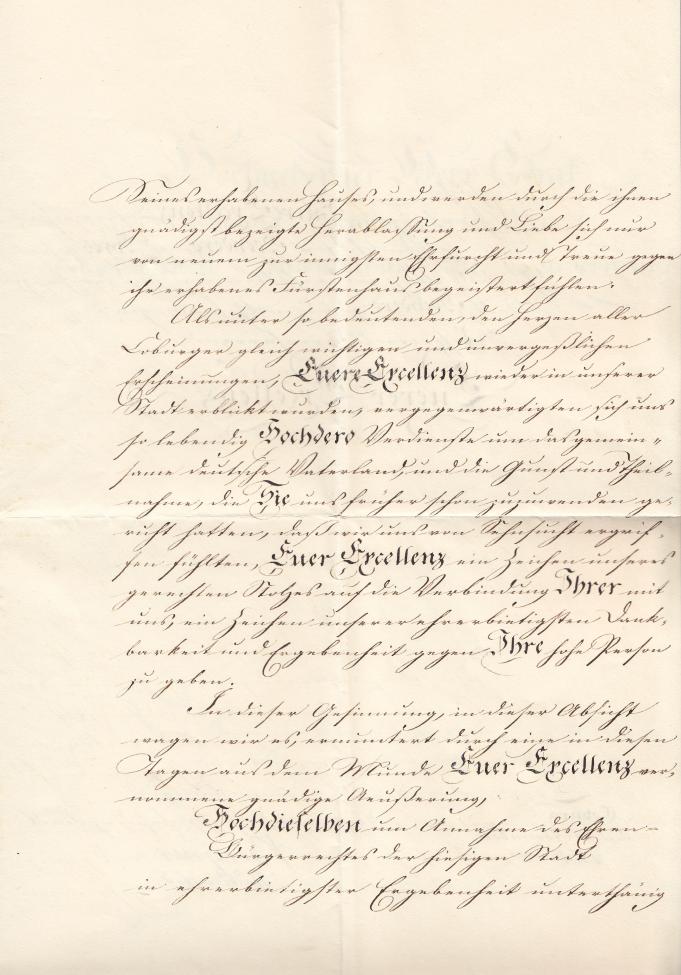 Seines erhabenen Hauses, und werden durch die ihnen
gnädigst bezeigte Herablassung und Liebe sich nur
von neuem zur innigsten Ehrfurcht und Treue gegen
ihr erhabenes Fürstenhaus begeistert fühlen.
Als unter so bedeutenden, den Herzen aller
Coburger gleich wichtigen und unvergeßlichen
Erscheinungen, Euere Excellenz wieder in unserer
Stadt erblickt wurden, vergegenwärtigten sich uns
so lebendig Hochdero Verdienste um das gemein-
same deutsche Vaterland, und die Gunst und Theil-
nahme, die Sie uns früher schon zuzuwenden ge-
ruht hatten, daß wir uns von Sehnsucht ergrif-
fen fühlten, Euer Excellenz ein Zeichen unseres
gerechten Stolzes auf die Verbindung Ihrer mit
uns, ein Zeichen unserer ehrerbietigsten Dank-
barkeit und Ergebenheit gegen Ihre hohe Person
zu geben.
In dieser Gesinnung, in dieser Absicht
wagen wir es, ermuntert durch eine in diesen
Tagen aus dem Munde Euer Excellenz ver-
nommene gnädige Aeußerung,
Hochdieselben um Annahme des Ehren-
Bürgerrechtes der hiesigen Stadt
in ehrerbietigster Ergebenheit unterthänig